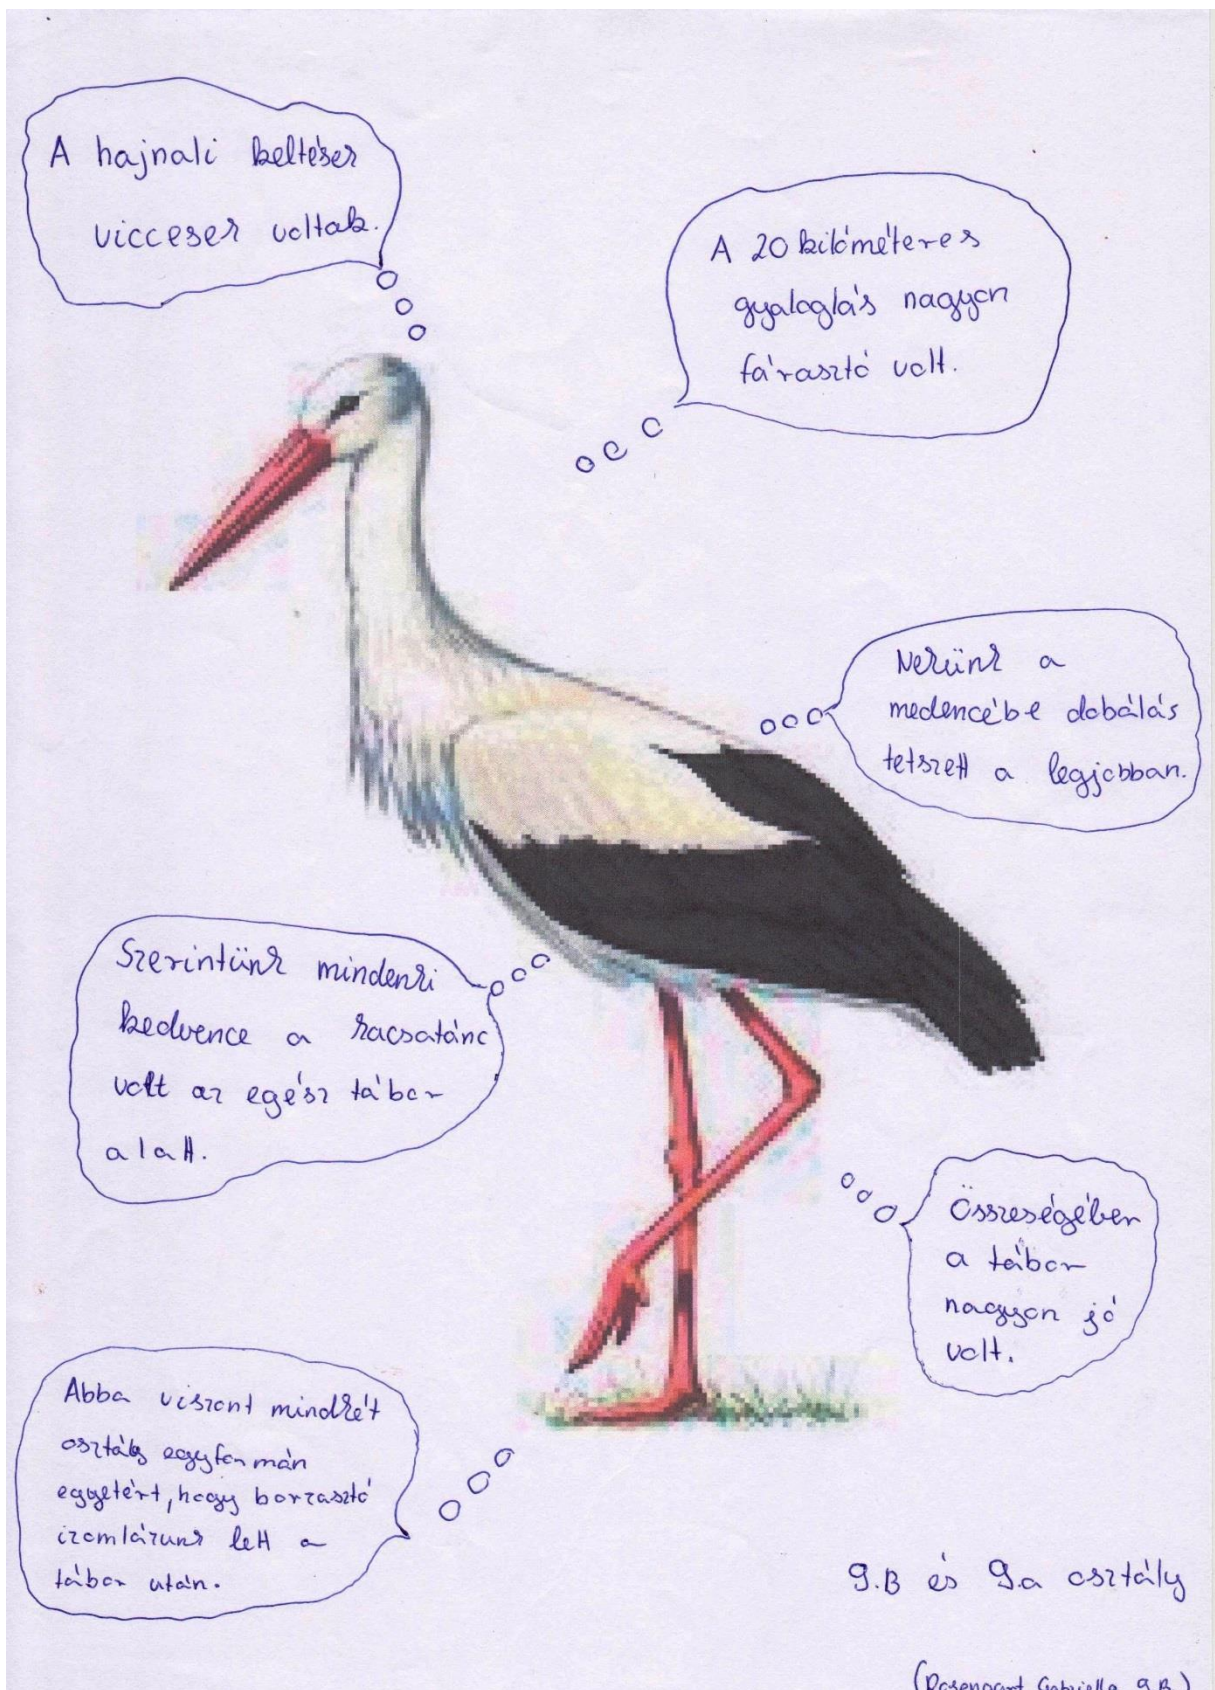 A hajnali keltések
viccesek voltak.
A 20 kilóméteres
gyaloglás nagyon
fárasztó volt.
Nekünk a
medencébe dobálás
tetszett a legjobban.
Szerintünk mindenki
kedvence a kacsatánc
volt az egész tábor
alatt.
Összeségében
a tábor
nagyon jó
volt.
Abba viszont mindkét
osztály egyformán
egyetért, hogy borzasztó
izomlázunk lett a
tábor után.
9.B és 9.a osztály
(Rosengart Gabriella 9.B)